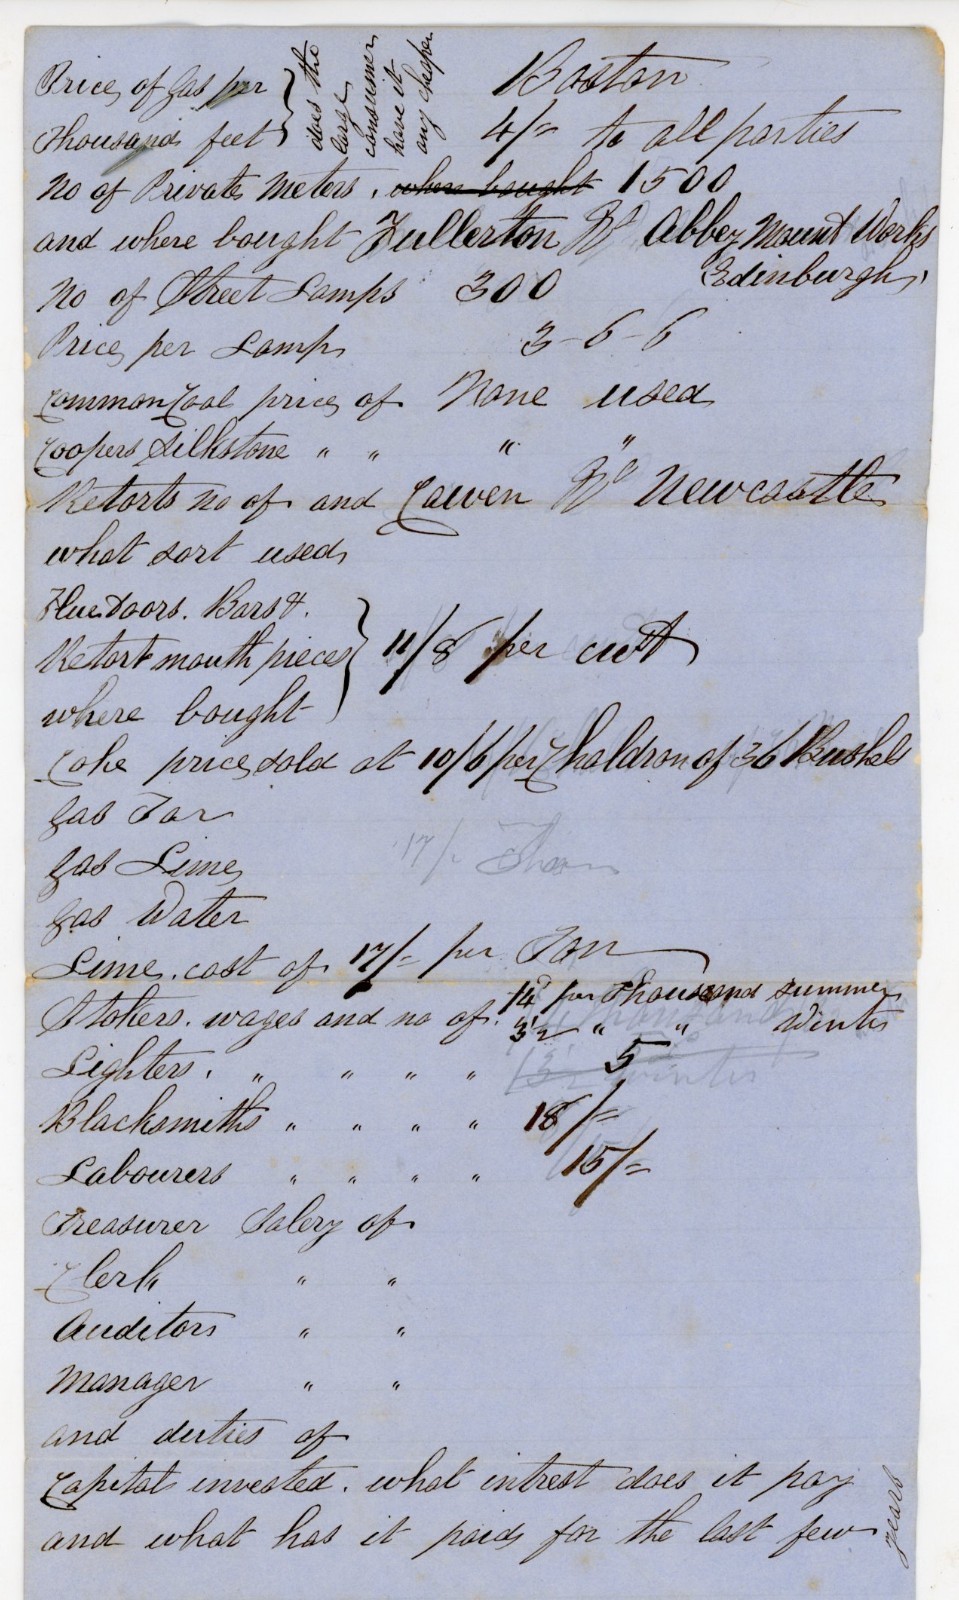 Boston
Price of Gas per
Thousand feet
does the
large
consumer
have it
any cheaper
4/= to all parties
No of Private Meters. where bought 1500
and where bought Fullerton Abbey Mount Works
Edinburgh
No of Street Lamps 300
Price per Lamp 3-6-6
Common Coal price of None used
Coopers Silkstone " " " "
Retorts no of and Cowen Newcastle
what sort used
Flue Doors. Bars &.
Retort mouth pieces
where bought
11/8 per cwt
Coke price sold at 10/6 per Chaldron of 36 Bushels
Gas Tar
Gas Lime
17/-
Gas Water
Lime. cost of 17/= per Ton
Stokers. wages and no of. 14 per Thousand Summer
3½ " " Winter
Lighters. " " " " 5
Winter
Blacksmiths " " " " 18/=
Labourers " " " " 15/=
Treasurer Salery of
Clerk " "
Auditors " "
Manager " "
and duties of
Capital invested. what intrest does it pay
and what has it paid for the last few
years